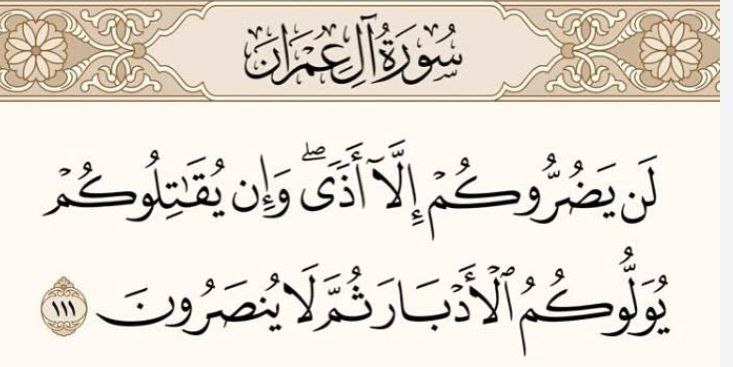 سُورَةُ آلِ عِمْرَان
لَن يَضُرُّوكُمْ إِلَّآ أَذًىۖ وَإِن يُقَٰتِلُوكُمْ
يُوَلُّوكُمُ ٱلْأَدْبَارَ ثُمَّ لَا يُنصَرُونَ ١١١